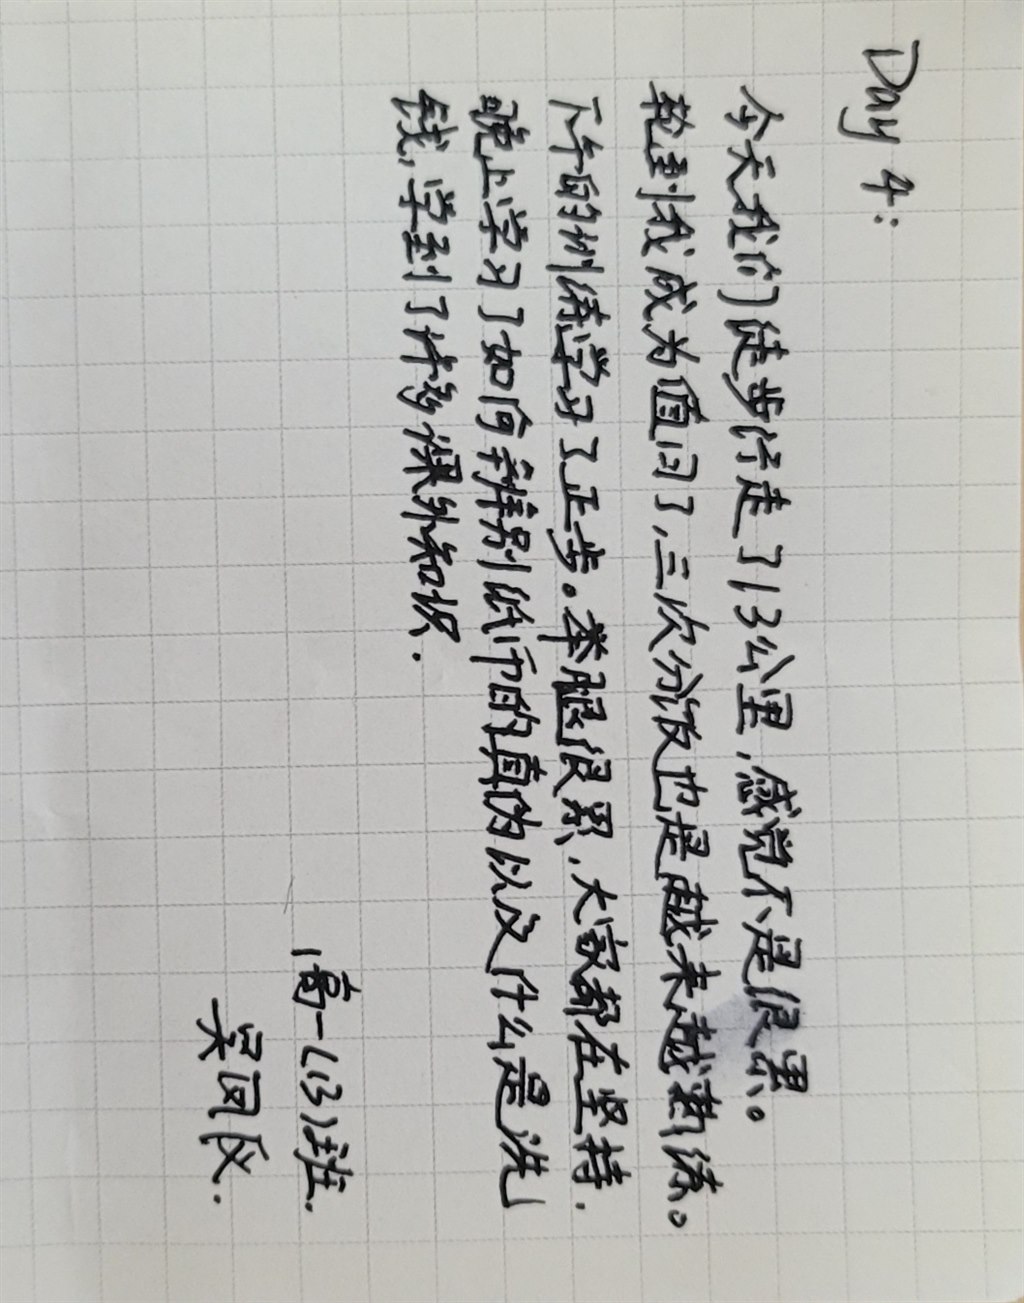 Day 4:
今天我们徒步行走了13公里,感觉不是很累。
轮到我成为值日了,三次分饭也是越来越熟练。
下午的训练学习了正步。举腿很累,大家都在坚持.
晚上学习了如何辨别纸币的真伪以及什么是洗
钱,学到了许多课外知识.
高一(13)班.
吴